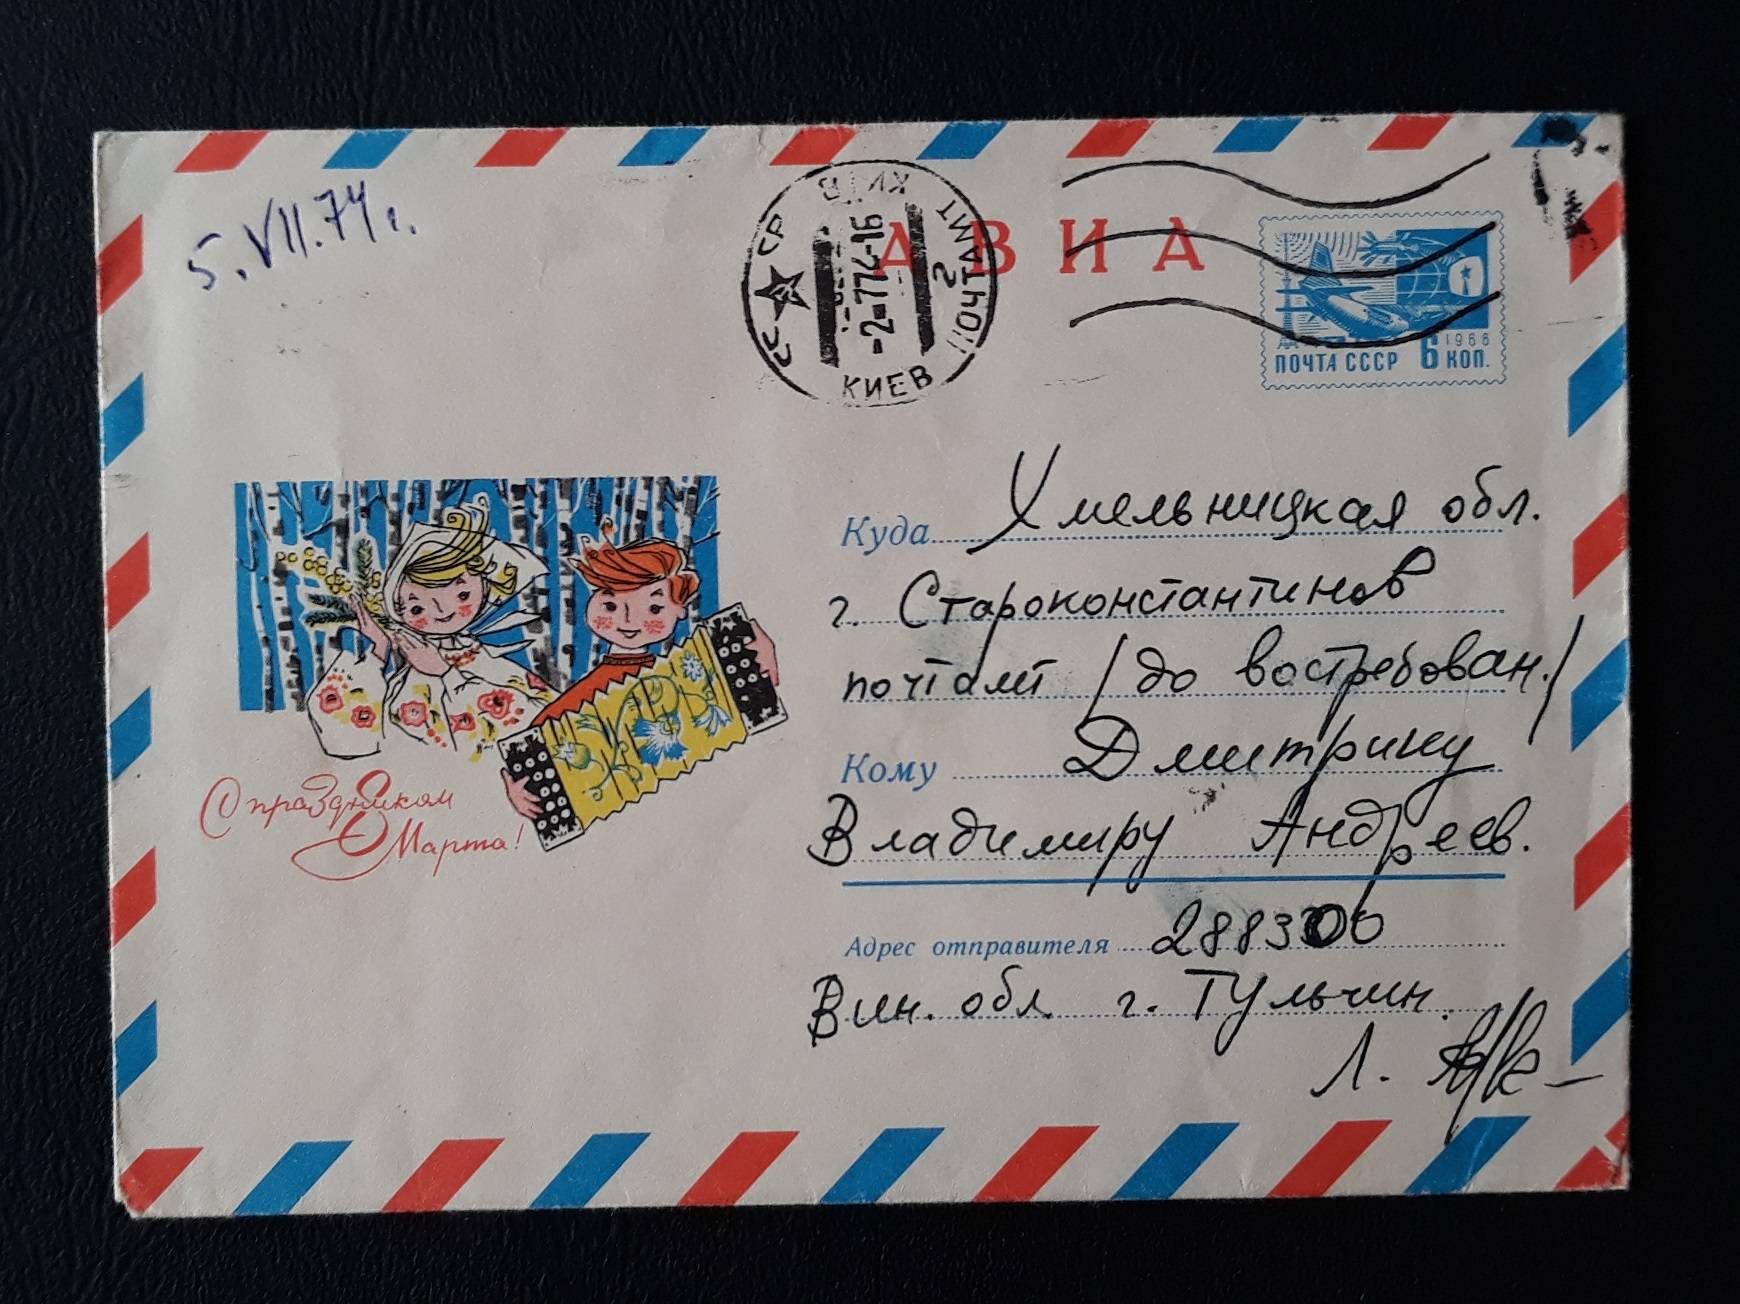 5.VII.74 г.
СССР
КИЇВ
-2-7 74-16
ПОЧТАМТ 2
КИЕВ
АВИА
1966
ПОЧТА СССР 6 КОП.
С праздником
8 Марта!
Куда Хмельницкая обл.
г. Староконстантинов
почтамт /до востребован./
Кому Дмитрину
Владимиру Андреев.
Адрес отправителя 288300
Вин. обл. г. Тульчин.
Л.